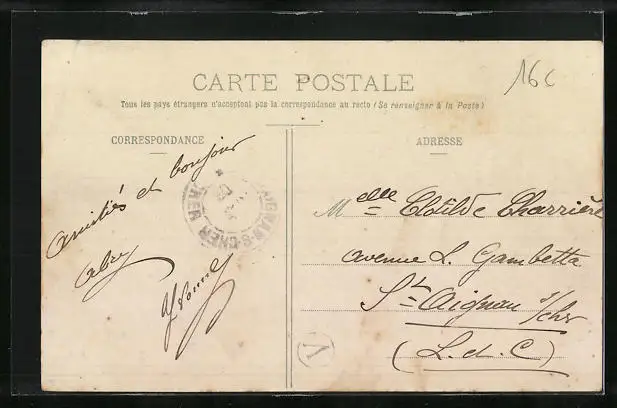 16c
CARTE POSTALE
Tous les pays étrangers n'acceptent pas la correspondance au recto (Se renseigner à la Poste)
CORRESPONDANCE
ADRESSE
amitiés et bonjour
AIGNAN-S-CHER
CHER
Melle Clotilde Charrière
avenue L. Gambetta
St Aignan s/cher
(L. d. C)